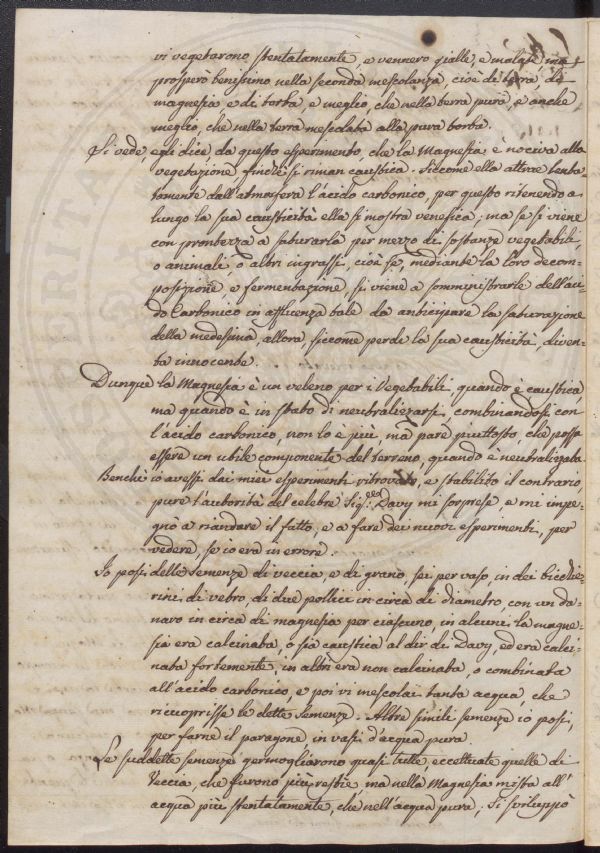 vi vegetarono stentatamente, e vennero gialle, e malate ma
prospero benissimo nella seconda mescolanza, cioè di terra, di
magnesia e di torba, e meglio, che nella terra pura, e anche
meglio, che nella terra mescolata alla pura torba.
Si vede, egli dice da questo esperimento, che la Magnesia è nociva alla
vegetazione finchè si riman caustica. Siccome ella attrae lenta-
tamente dall'atmosfera l'ácido carbonico, per questo ritenendo a-
lungo la sua causticità ella si mostra venefica; ma se si viene
con prontezza a saturarla per mezzo di sostanze vegetabili,
o animali, o altri ingrassi, cioè se, mediante la loro decom-
posizione, e fermentazione, si viene a somministrarle dell'áci-
do Carbonico in affluenza tale da anticipare la saturazione
della medesima, allora, siccome perde la sua causticità, diven-
ta innocente.
Dunque la Magnesia è un veleno per i Vegetabili quando è caustica,
ma quando è in stato di neutralizzarsi, combinandosi con
l'ácido carbonico, non lo è più, mà pare piuttosto, che possa
essere un utile componente del terreno, quando è neutralizzata.
Benchè io avessi dai miei esperimenti ritrovato, e stabilito il contrario
pure l'autorità del celebre Sig.re Davy mi sorprese, e mi impe-
gnò a riandare il fatto, e a fare dei nuovi esperimenti, per
vedere, se io era in errore.
Io posi delle Semenze di veccia, e di grano, sei per vaso, in dei bicchie-
rini di vetro, di due pollici in circa di diametro, con un da-
naro in circa di magnesia per ciascuno, in alcuni la magne-
sia era calcinata, o sia caustica al dir di Davy, ed era calci-
nata fortemente, in altri era non calcinata, o combinata
all'ácido carbonico, e poi vi mescolai tanta acqua, che
ricuoprisse le dette Semenze. Altre simili semenze io posi,
per farne il paragone in vasi d'acqua pura.
Le suddette semenze germogliárono quasi tutte, eccettuate quelle di
Veccia, che furono più restie, ma nella Magnesia mista all'
acqua più stentatamente, che nell'acqua pura. Si sviluppò